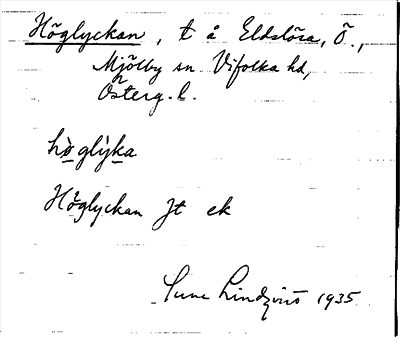 Höglyckan, t å Eldslösa, Ö.,
Mjölby sn Vifolka hd,
Österg. l.
hø̀glỳka
Höglyckan Jt ek
Sune Lindqvist 1935